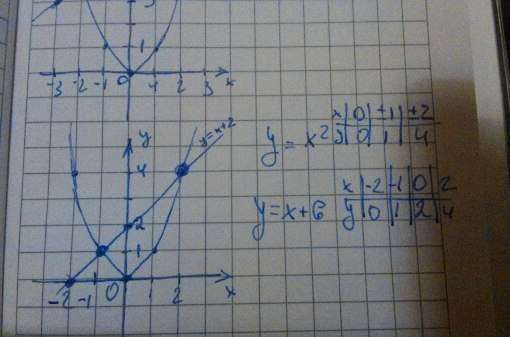 3
1
-3 -2 -1 0 1 2 3 x
y
y=x+2
4
2
1
-2 -1 0 1 2 x
x | 0 | ±1 | ±2
y = x² y | 0 | 1 | 4
x | -2 | -1 | 0 | 2
y = x+6 y | 0 | 1 | 2 | 4